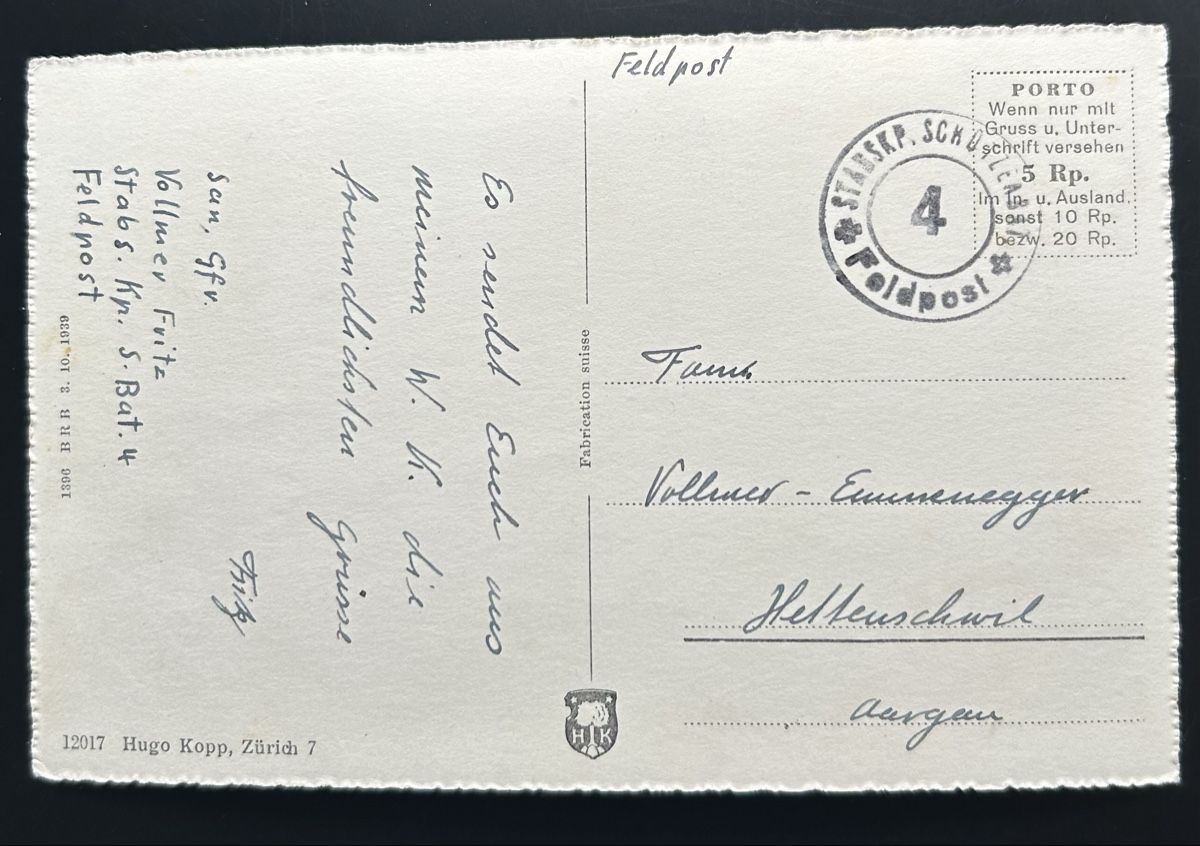 Feldpost
PORTO
Wenn nur mit
Gruss u. Unter-
schrift versehen
5 Rp.
Im In- u. Ausland.
sonst 10 Rp.
bezw. 20 Rp.
STABSKP. SCHÜTZENBAT.
4
Feldpost
Fam.
Vollmer - Emmenegger
Hettenschwil
Aargau
Es sendet Euch aus
meinem W. K. die
freundlichsten Grüsse
Fritz
San. Gfr.
Vollmer Fritz
Stabs. Kp. S. Bat. 4
Feldpost
1396 BRB 3.10.1939
Fabrication suisse
H K
12017 Hugo Kopp, Zürich 7